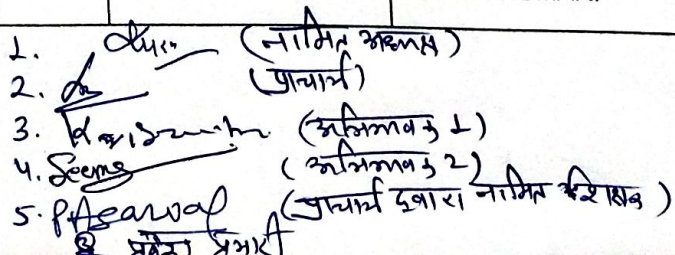 1. (नामित अध्यक्ष)
2. (प्राचार्य)
3. (अभिभावक 1)
4. Seema (अभिभावक 2)
5. P Agarwal (प्राचार्य द्वारा नामित शिक्षक)
प्रवेश प्रभारी